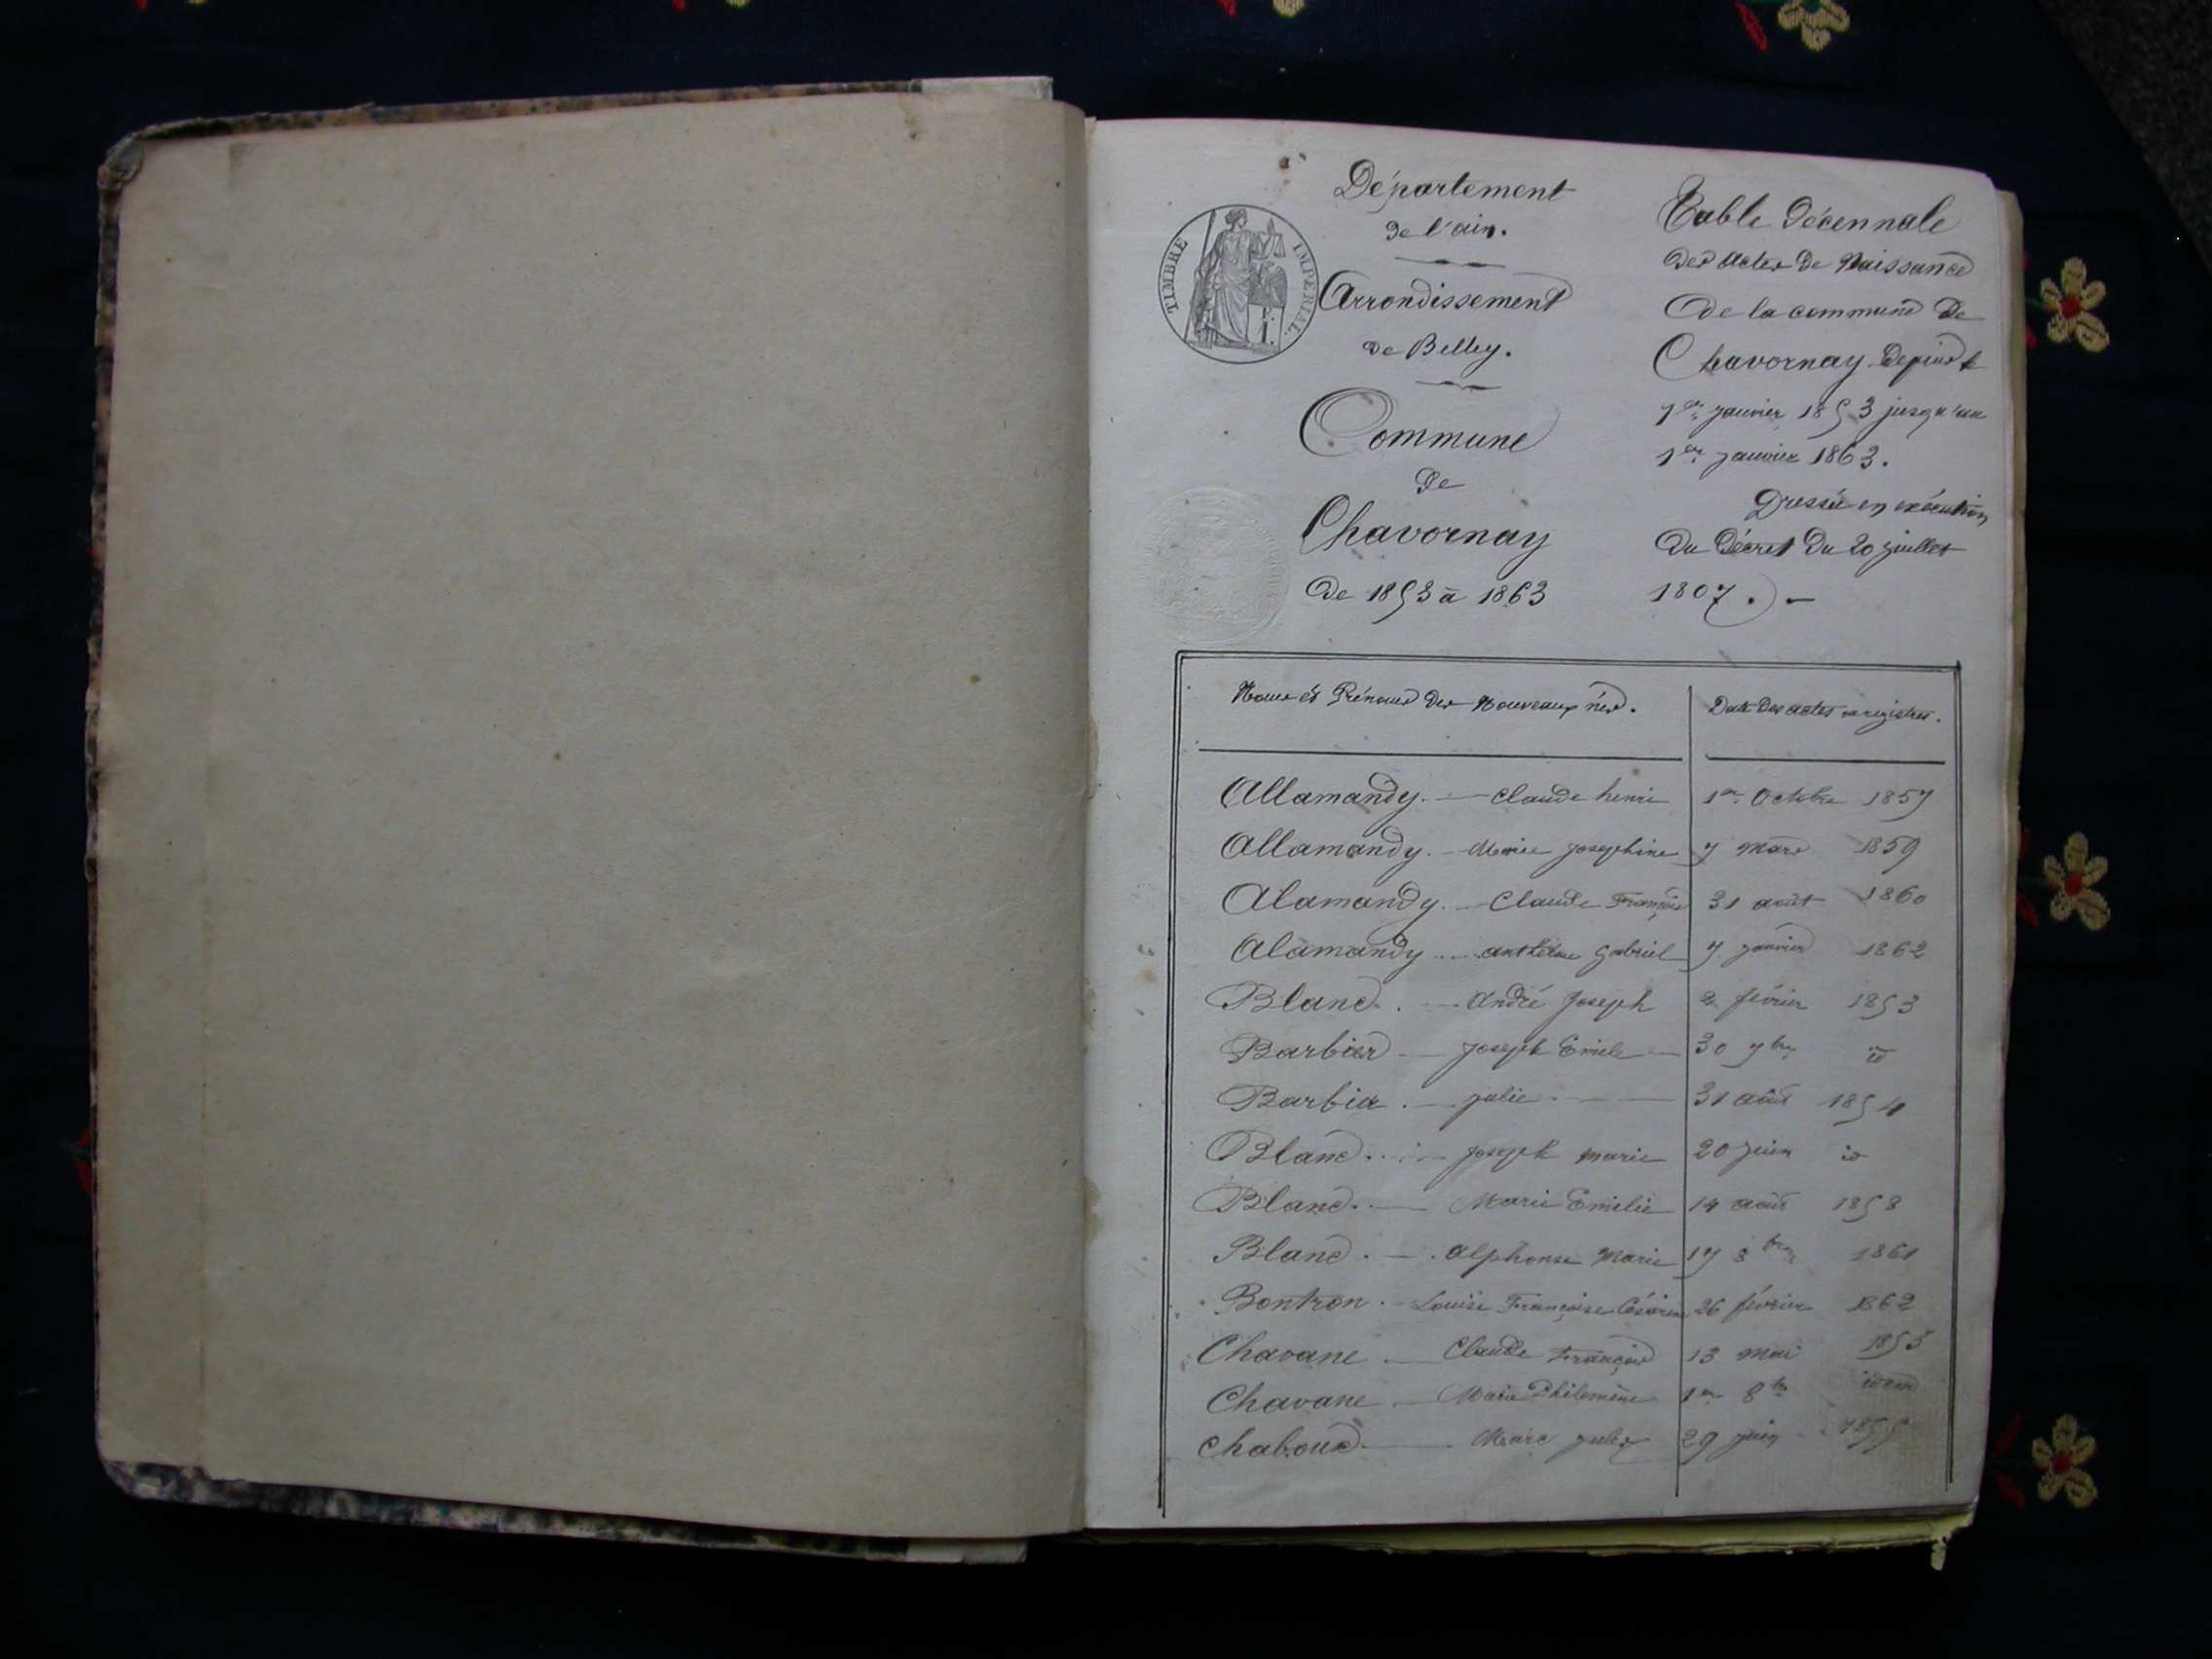 Département
de l'ain.
TIMBRE IMPERIAL.
Arrondissement
de Belley.
Commune
de
Chavornay
de 1853 à 1863
Table Décennale
des actes de Naissance
de la commune de
Chavornay depuis le
1er janvier 1853 jusqu'au
1er janvier 1863.
Dressée en exécution
du Décret du 20 juillet
1807.
Noms et Prénoms des Nouveaux nés. Date des actes
Allamandy. — Claude henri 1er Octobre 1857
Allamandy. — Marie josephine 7 mars 1859
Alamandy. — Claude François 31 août 1860
Alamandy anthelme Gabriel 7 janvier 1862
Blanc. — André Joseph 2 février 1853
Barbier — joseph Emile — 30 7bre id
Barbier. — julie 31 août 1854
Blanc joseph marie 20 juin id
Blanc. — Marie Emilie 14 août 1858
Blanc. — alphonse Marie 17 8bre 1861
Bontron. — Louise Françoise Césarine 26 février 1862
Chavane — Claude françois 13 mai 1853
Chavane — Marie Philomène 1er 8bre idem
Chaboud — Marc jules 29 juin 1855